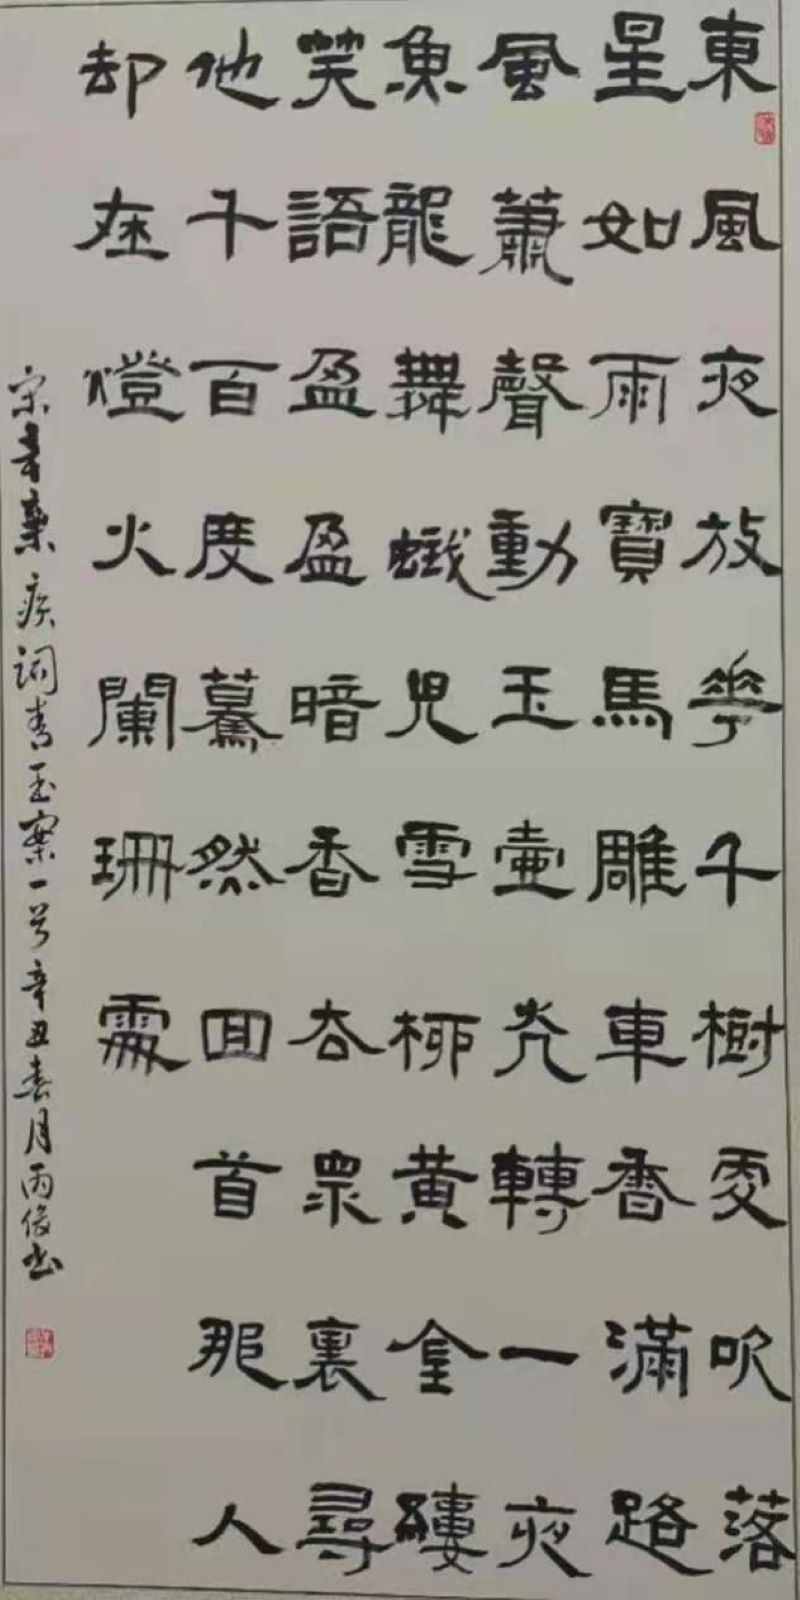 東風夜放華千樹更吹落
星如雨寶馬雕車香滿路
風蕭聲動玉壺光轉一夜
魚龍舞蛾兒雪柳黃金縷
笑語盈盈暗香去眾裏尋
他千百度驀然回首那人
却在燈火闌珊處
宋辛棄疾詞青玉案一首辛丑春月丙俊書